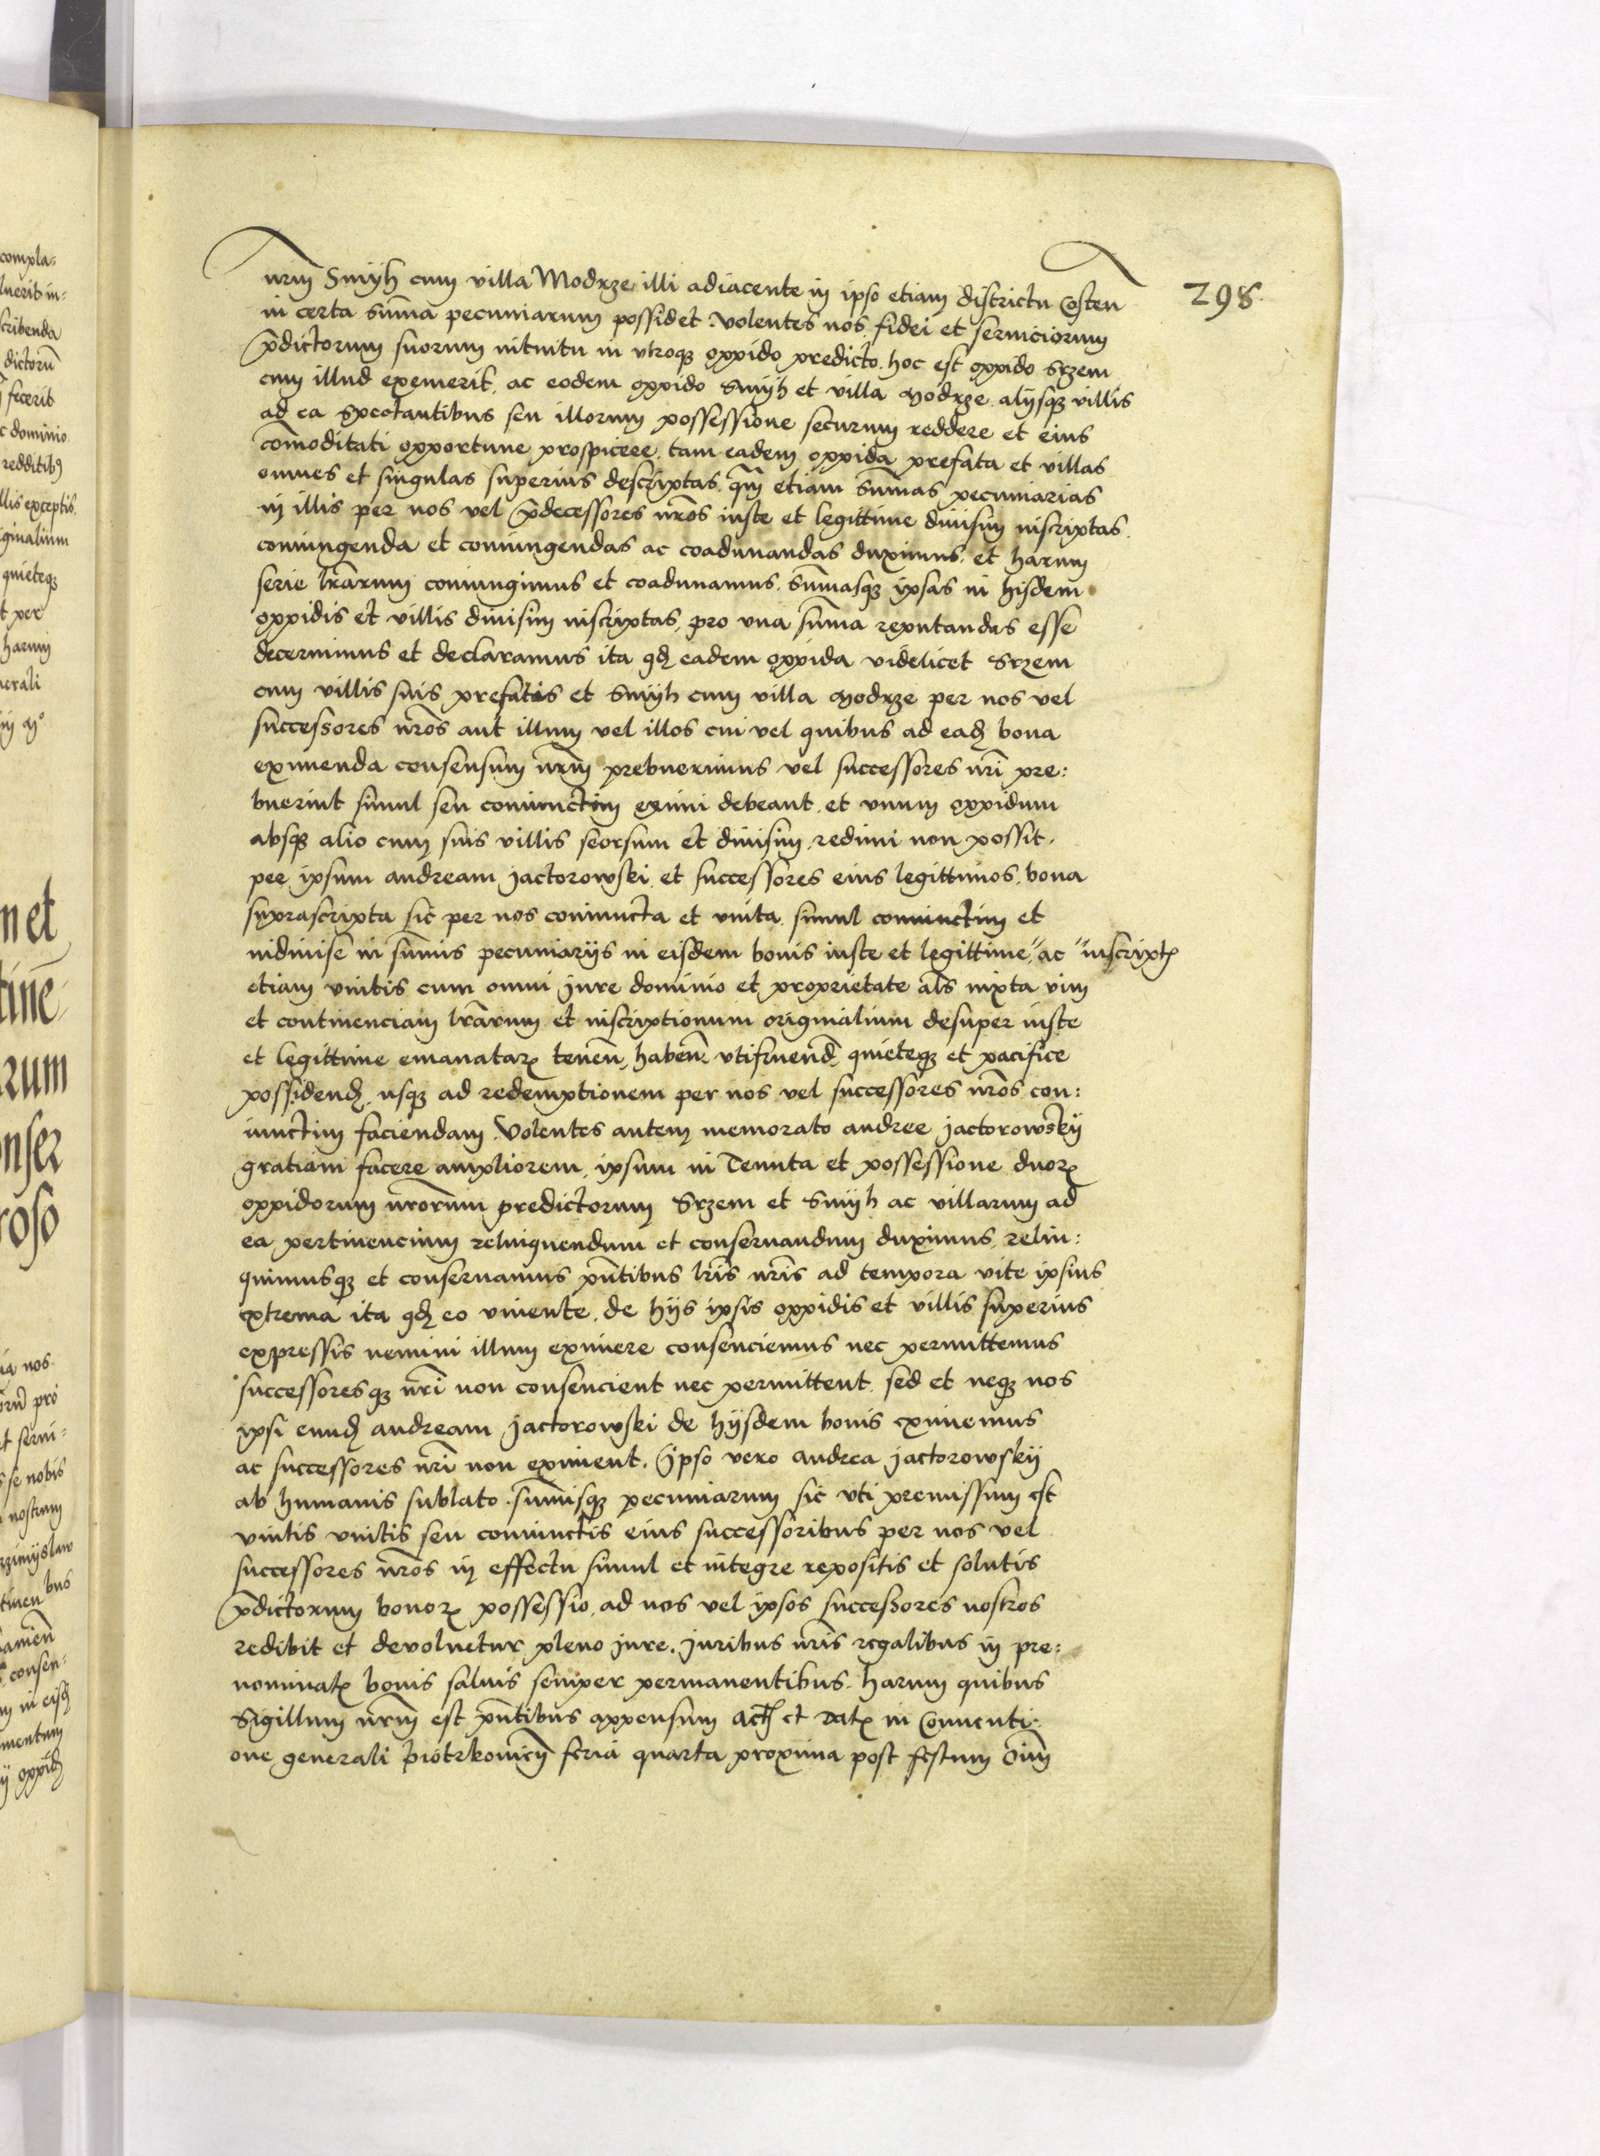 298
nrm̄ Smyh cum villa Modrze illi adiacente in ipso etiam districtu Costen̄
in certa sum̄a pecuniarum possidet. Volentes nos fidei et seruiciorum
p̄dictorum suorum intuitu in vtroqꝫ oppido predicto. hoc est oppido Srzem
cum illud exemerit, ac eodem oppido Smyh et villa Modrze alijsqꝫ villis
ad ea spectantibus seu illorum possessione securum reddere et eius
com̄oditati opportune prospicere, tam eadem oppida prefata et villas
omnes et singulas superius descriptas, qm̄ etiam sum̄as pecuniarias
in illis per nos vel p̄decessores nr̄os iuste et legittime diuisim inscriptas.
coniungenda et coniungendas ac coadunandas duximus, et harum
serie lr̄arum coniungimus et coadunamus. Sum̄asqꝫ ipsas in hisdem
oppidis et villis diuisim inscriptas, pro vna sum̄a reputandas esse
decernimus et declaramus ita qđ eadem oppida videlicet Srzem
cum villis suis prefatis et Smyh cum villa Modrze per nos vel
successores nr̄os aut illum vel illos cui vel quibus ad eađ bona
eximenda consensum nrm̄ prebuerimus vel successores nr̄i pre:
buerint simul seu coniunctim eximi debeant. et vnum oppidum
absqꝫ alio cum suis villis seorsum et diuisim redimi non possit.
per ipsum andream Jactorowski et successores eius legittimos, bona
suprascripta sic per nos coniuncta et vnita simul coniunctim et
indiuise in sum̄is pecuniarijs in eisdem bonis iuste et legittime " ac " inscriptꝭ
etiam vnitis cum omni jure dominio et proprietate al̄s iuxta vim
et continenciam lr̄arum et inscriptionum originalium desuper iuste
et legittime emanataꝝ tenen̄, haben̄. vtifruend̄, quieteqꝫ et pacifice
possidenđ, usqꝫ ad redemptionem per nos vel successores nr̄os con:
iunctim faciendam. Volentes autem memorato andree Jactorowskij
gratiam facere ampliorem, ipsum in Tenuta et possessione duoꝝ
oppidorum nr̄orum predictorum Srzem et Smyh ac villarum ad
ea pertinencium relinquendum et conseruandum duximus, relin:
quimusqꝫ et conseruamus pn̄tibus lr̄is nr̄is ad tempora vite ipsius
extrema ita qđ eo viuente. de hijs ipsis oppidis et villis superius
expressis nemini illum eximere consenciemus nec permittemus
successoresqꝫ nr̄i non consencient nec permittent. sed et neqꝫ nos
ipsi eunđ andream Jactorowski de hijsdem bonis eximemus
ac successores nr̄i non eximent. Ipso vero andrea Jactorowskij
ab humanis sublato. sum̄isqꝫ pecuniarum sic vti premissum est
vnitis vnitis seu coniunctis eius successoribus per nos vel
successores nr̄os in effectu simul et integre repositis et solutis
p̄dictorum bonoꝝ possessio, ad nos vel ipsos successores nostros
redibit et devoluetur pleno jure. juribus nr̄is regalibus in pre:
nominatꝭ bonis saluis semper permanentibus. harum quibus
Sigillum nrm̄ est pn̄tibus appensum Actꝭ et datꝭ in Conuenti:
one generali Piotrkouien̄ feria quarta proxima post festum oīm̄